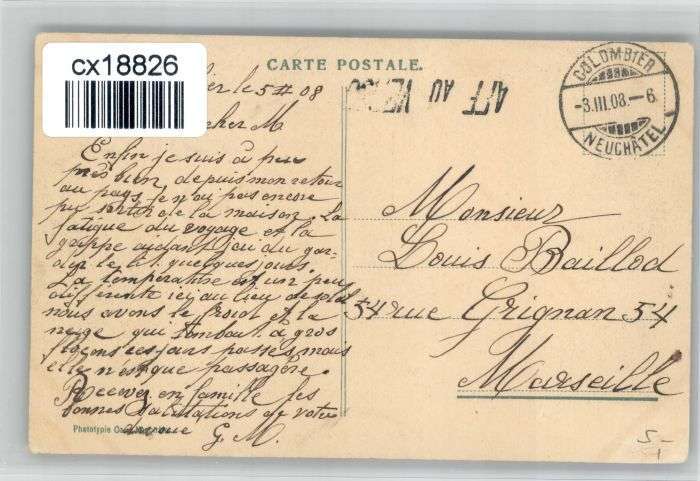 cx18826
CARTE POSTALE.
AFF AU VERSO
COLOMBIER
-3.III.08.-6
NEUCHÂTEL
ier le 5 08
cher M
Enfin je suis à peu
près bien, depuis mon retour
au pays, je n'ai pas encore
pu sortir de la maison. La
fatigue du voyage et la
grippe aidant, j'ai du gar-
der le lit quelques jours.
La température est un peu
différente ici au lieu de soleil
nous avons le froid et la
neige qui tombait à gros
flocons ces jours passés, mais
elle n'est que passagère.
Recevez en famille les
bonnes salutations de votre
G. M.
Monsieur
Louis Baillod
54 rue Grignan 54
Marseille
Phototypie Co
5-